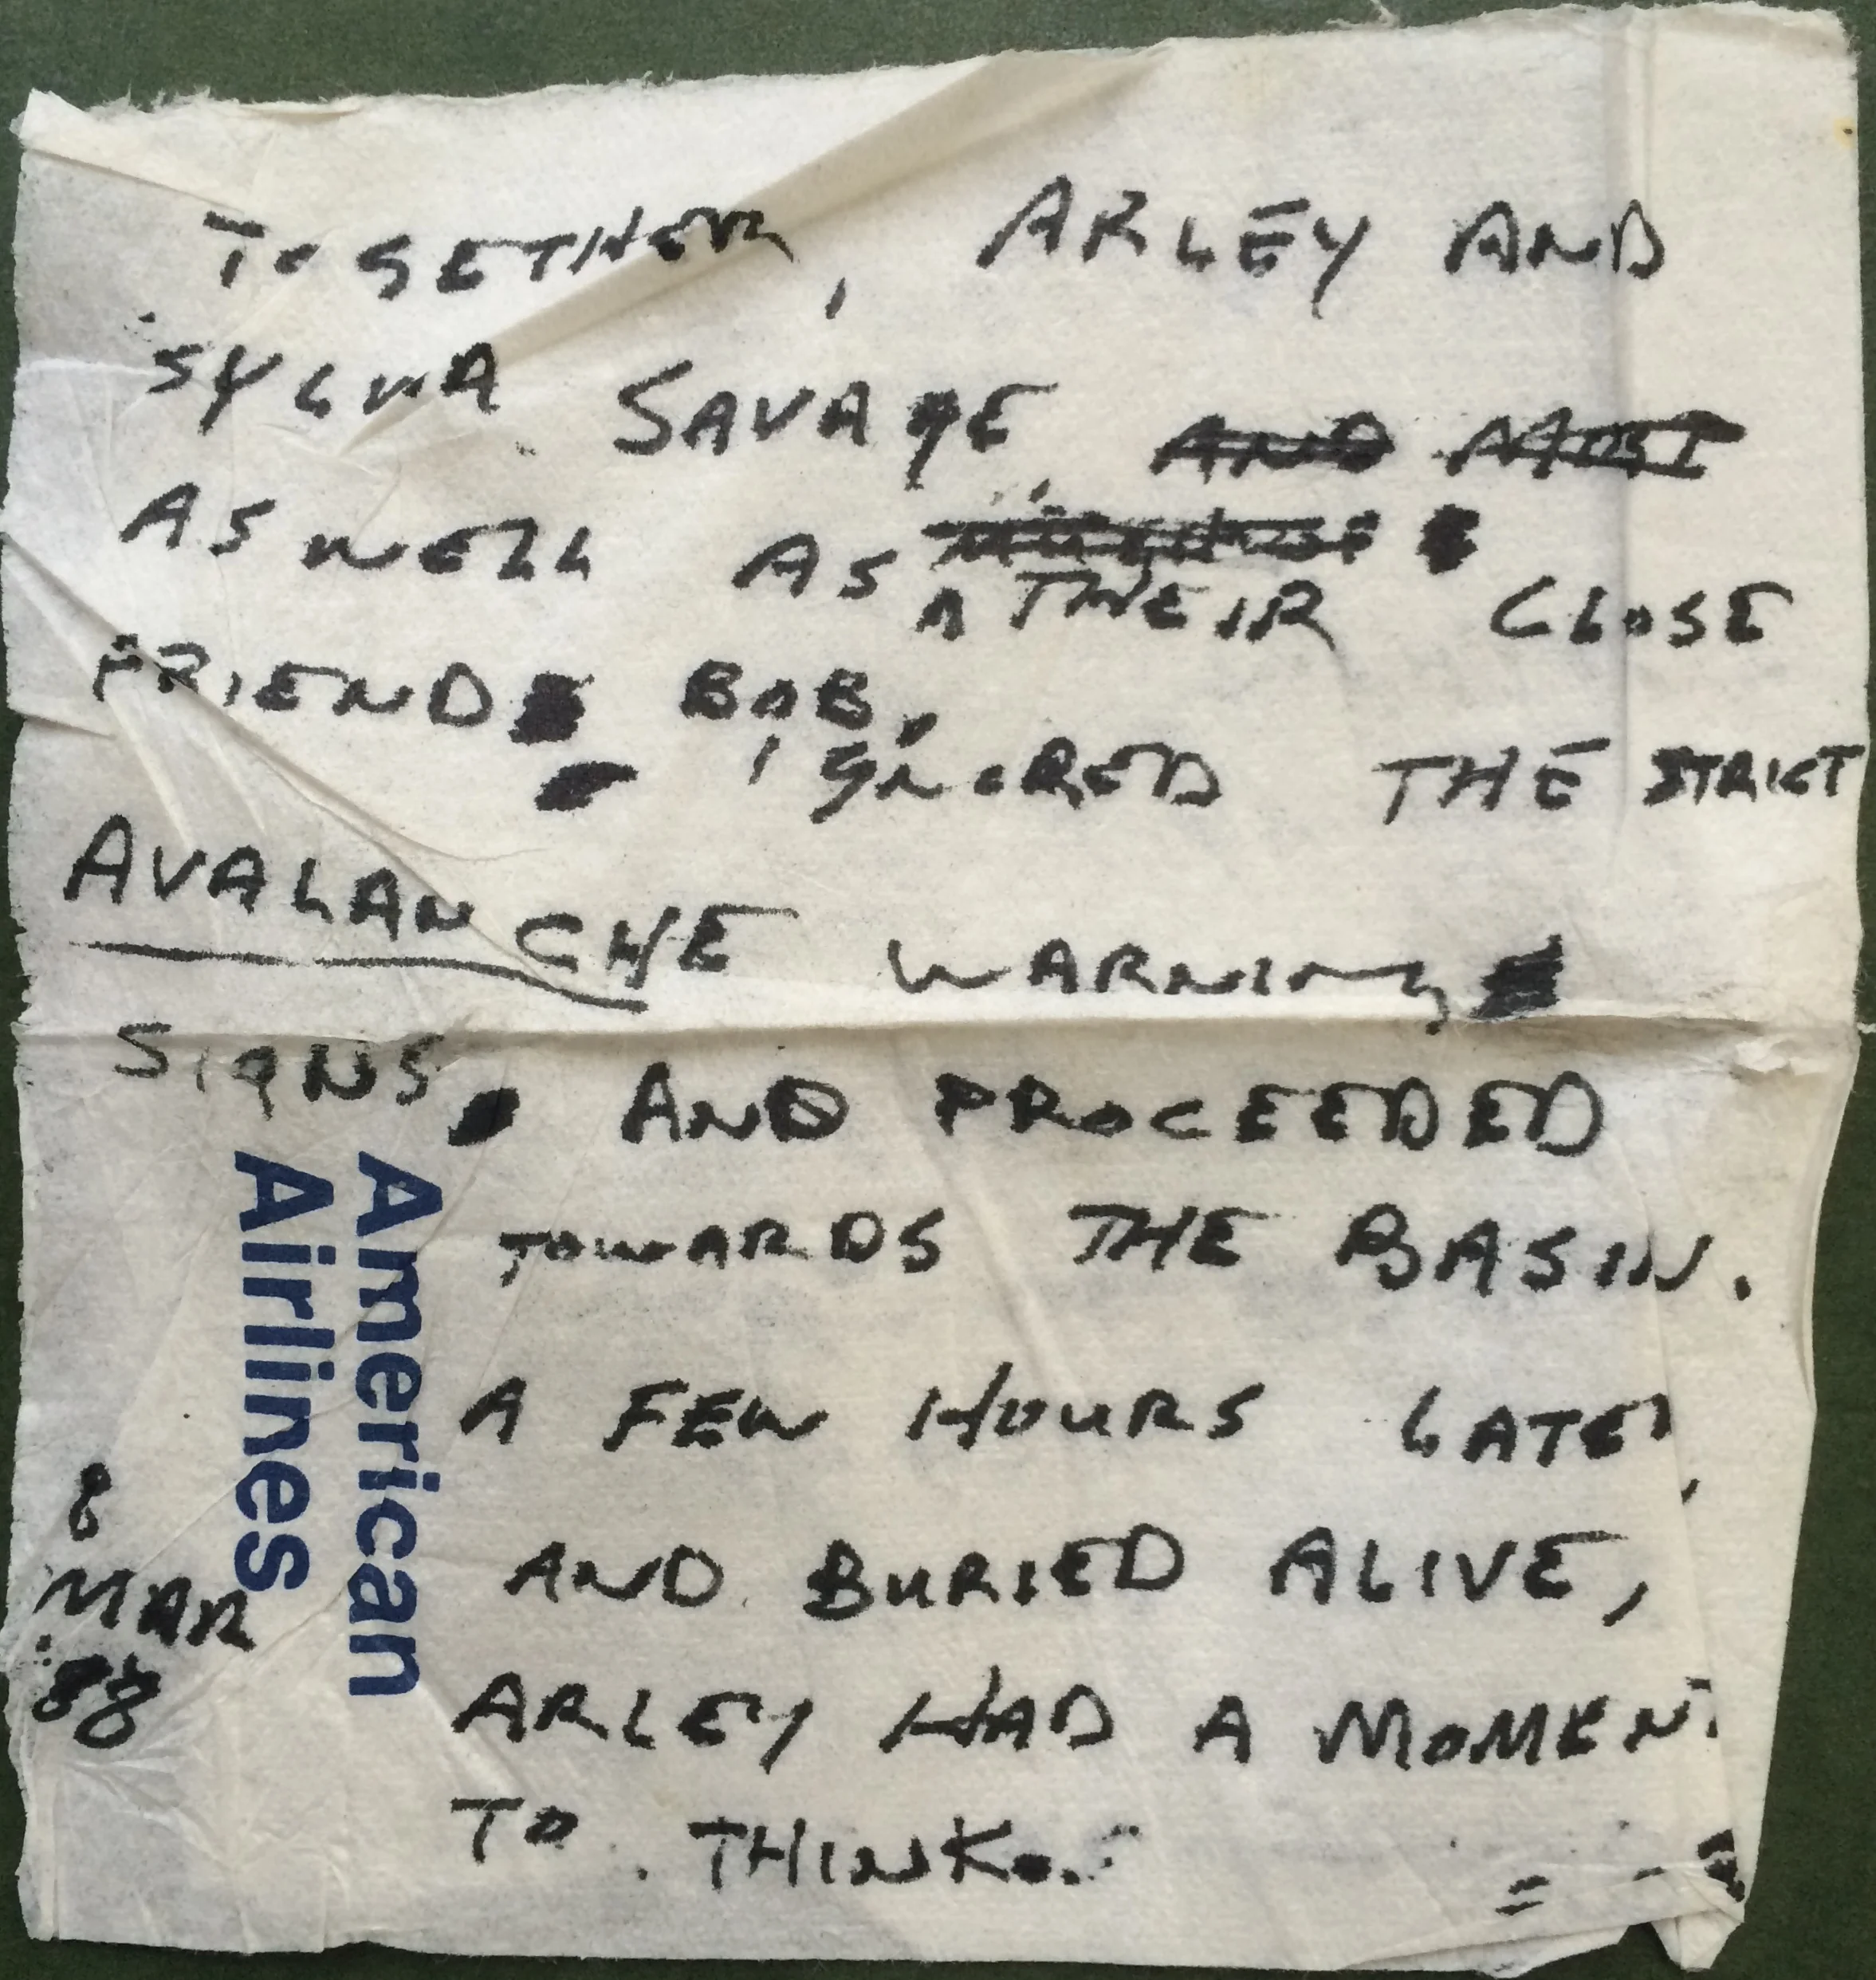 TOGETHER, ARLEY AND
SYLVIA SAVAGE, AND
AS WELL AS THEIR CLOSE
FRIEND BOB,
IGNORED THE STRICT
AVALANCHE WARNING
SIGNS AND PROCEEDED
TOWARDS THE BASIN.
A FEW HOURS LATER,
AND BURIED ALIVE,
ARLEY HAD A MOMENT
TO THINK.
American
Airlines
8
MAR
'88